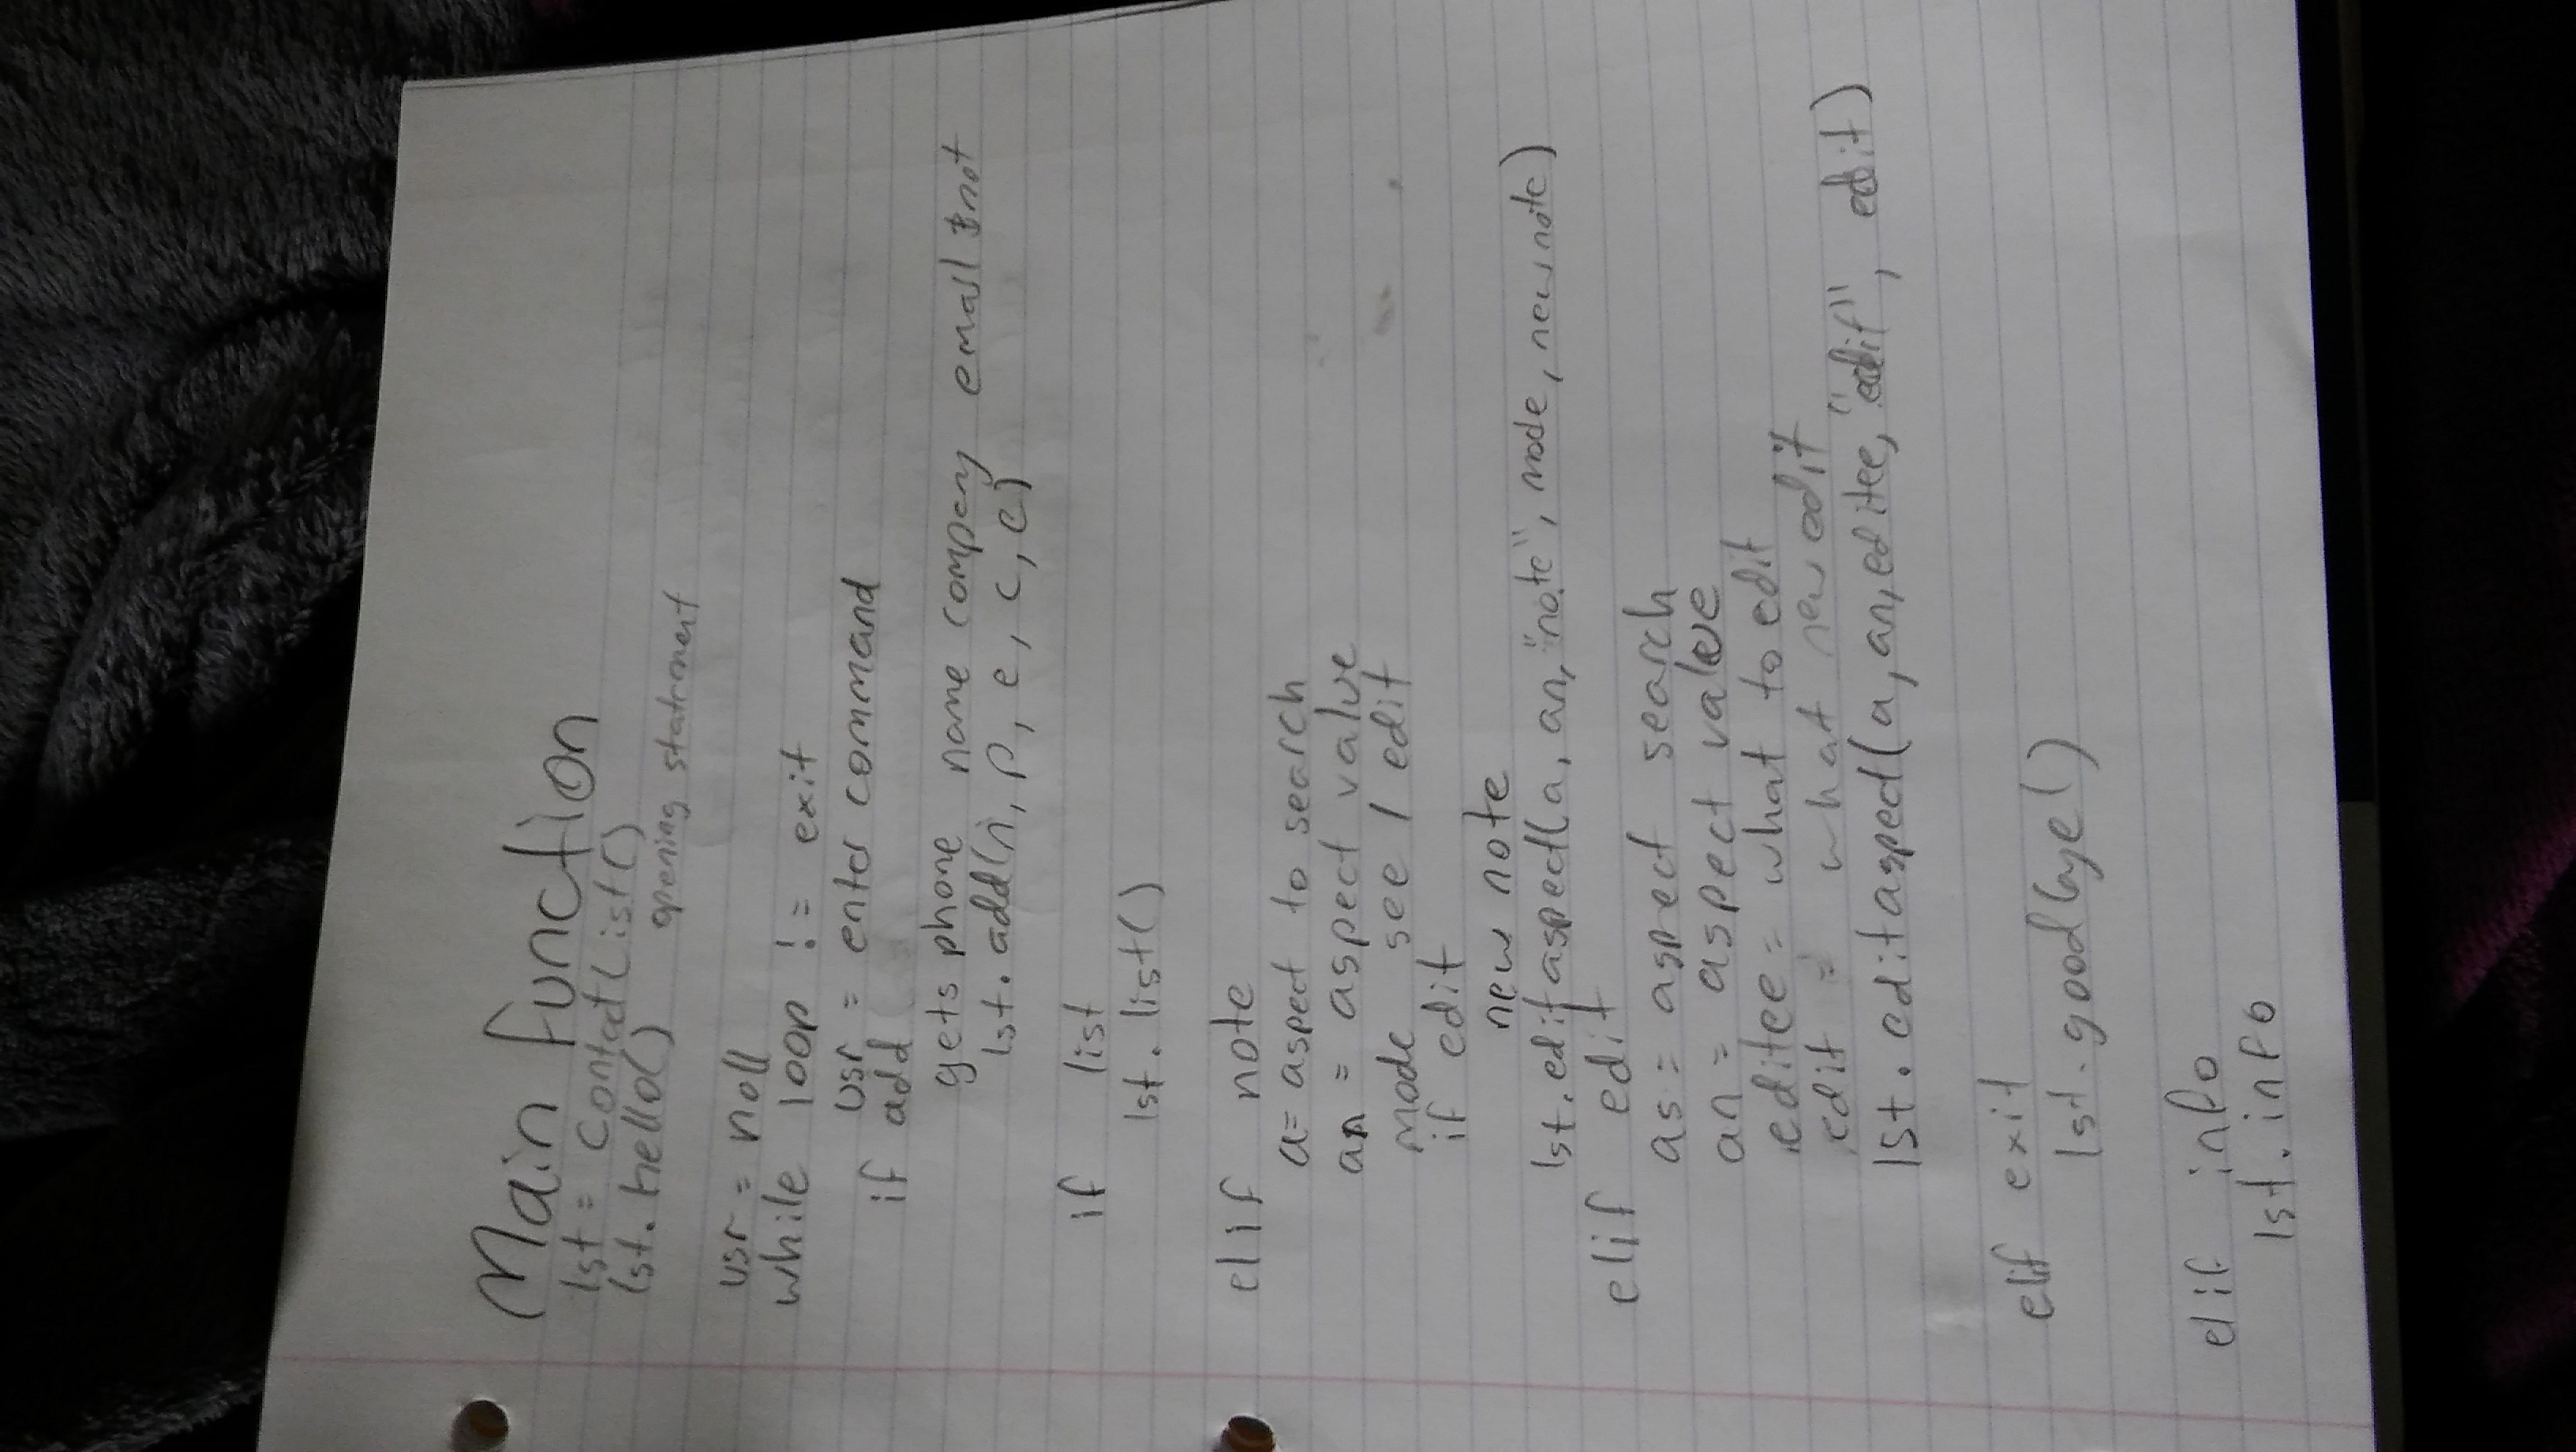 Main function
lst = ContactList()
lst. hello() opening statement
usr = noll
while loop != exit
usr = enter command
if add
gets phone name company email
lst. add(n, p, e, c, e)
if list
lst. list()
elif note
a= aspect to search
an = aspect value
mode see / edit
if edit
new note
lst. editaspect(a, an, "note", mode, newnote)
elif edit
as = aspect search
an = aspect value
editee = what to edit
edit = what new edit
lst. editaspect(a, an, editee, "edit", edit)
elif exit
lst. goodbye()
elif info
lst. info